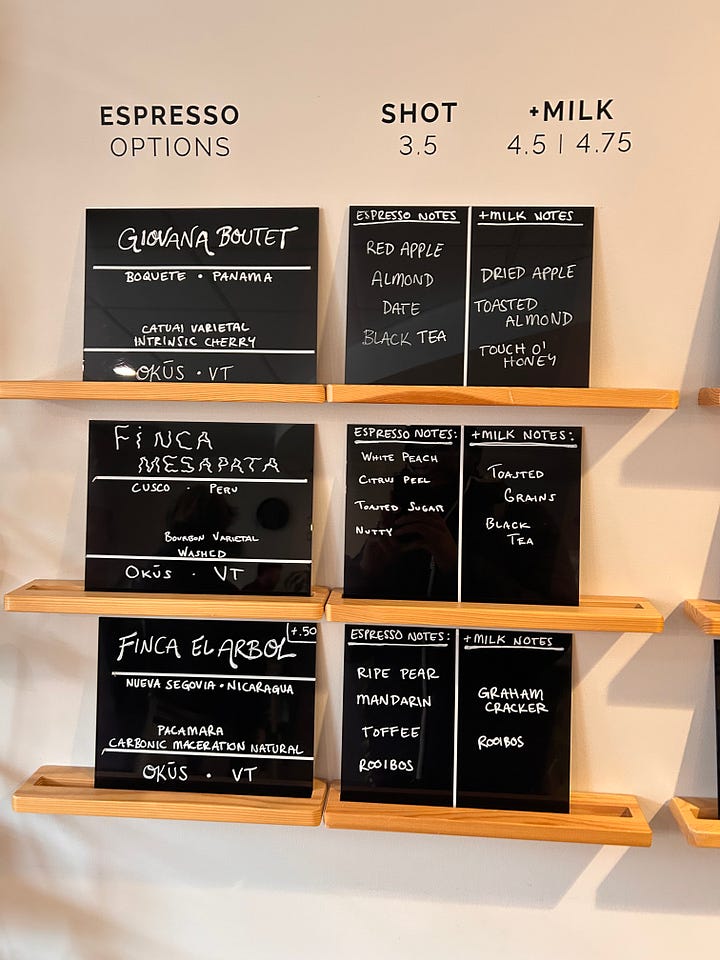 ESPRESSO
OPTIONS
SHOT
3.5
+MILK
4.5 | 4.75
GIOVANA BOUTET
BOQUETE • PANAMA
CATUAI VARIETAL
INTRINSIC CHERRY
OKŪS • VT
ESPRESSO NOTES
RED APPLE
ALMOND
DATE
BLACK TEA
+MILK NOTES
DRIED APPLE
TOASTED
ALMOND
TOUCH O'
HONEY
FINCA
MESAPATA
CUSCO • PERU
BOURBON VARIETAL
WASHED
OKŪS • VT
ESPRESSO NOTES:
WHITE PEACH
CITRUS PEEL
TOASTED SUGAR
NUTTY
+MILK NOTES:
TOASTED
GRAINS
BLACK
TEA
+.50
FINCA EL ARBOL
NUEVA SEGOVIA • NICARAGUA
PACAMARA
CARBONIC MACERATION NATURAL
OKŪS • VT
ESPRESSO NOTES:
RIPE PEAR
MANDARIN
TOFFEE
ROOIBOS
+MILK NOTES
GRAHAM
CRACKER
ROOIBOS